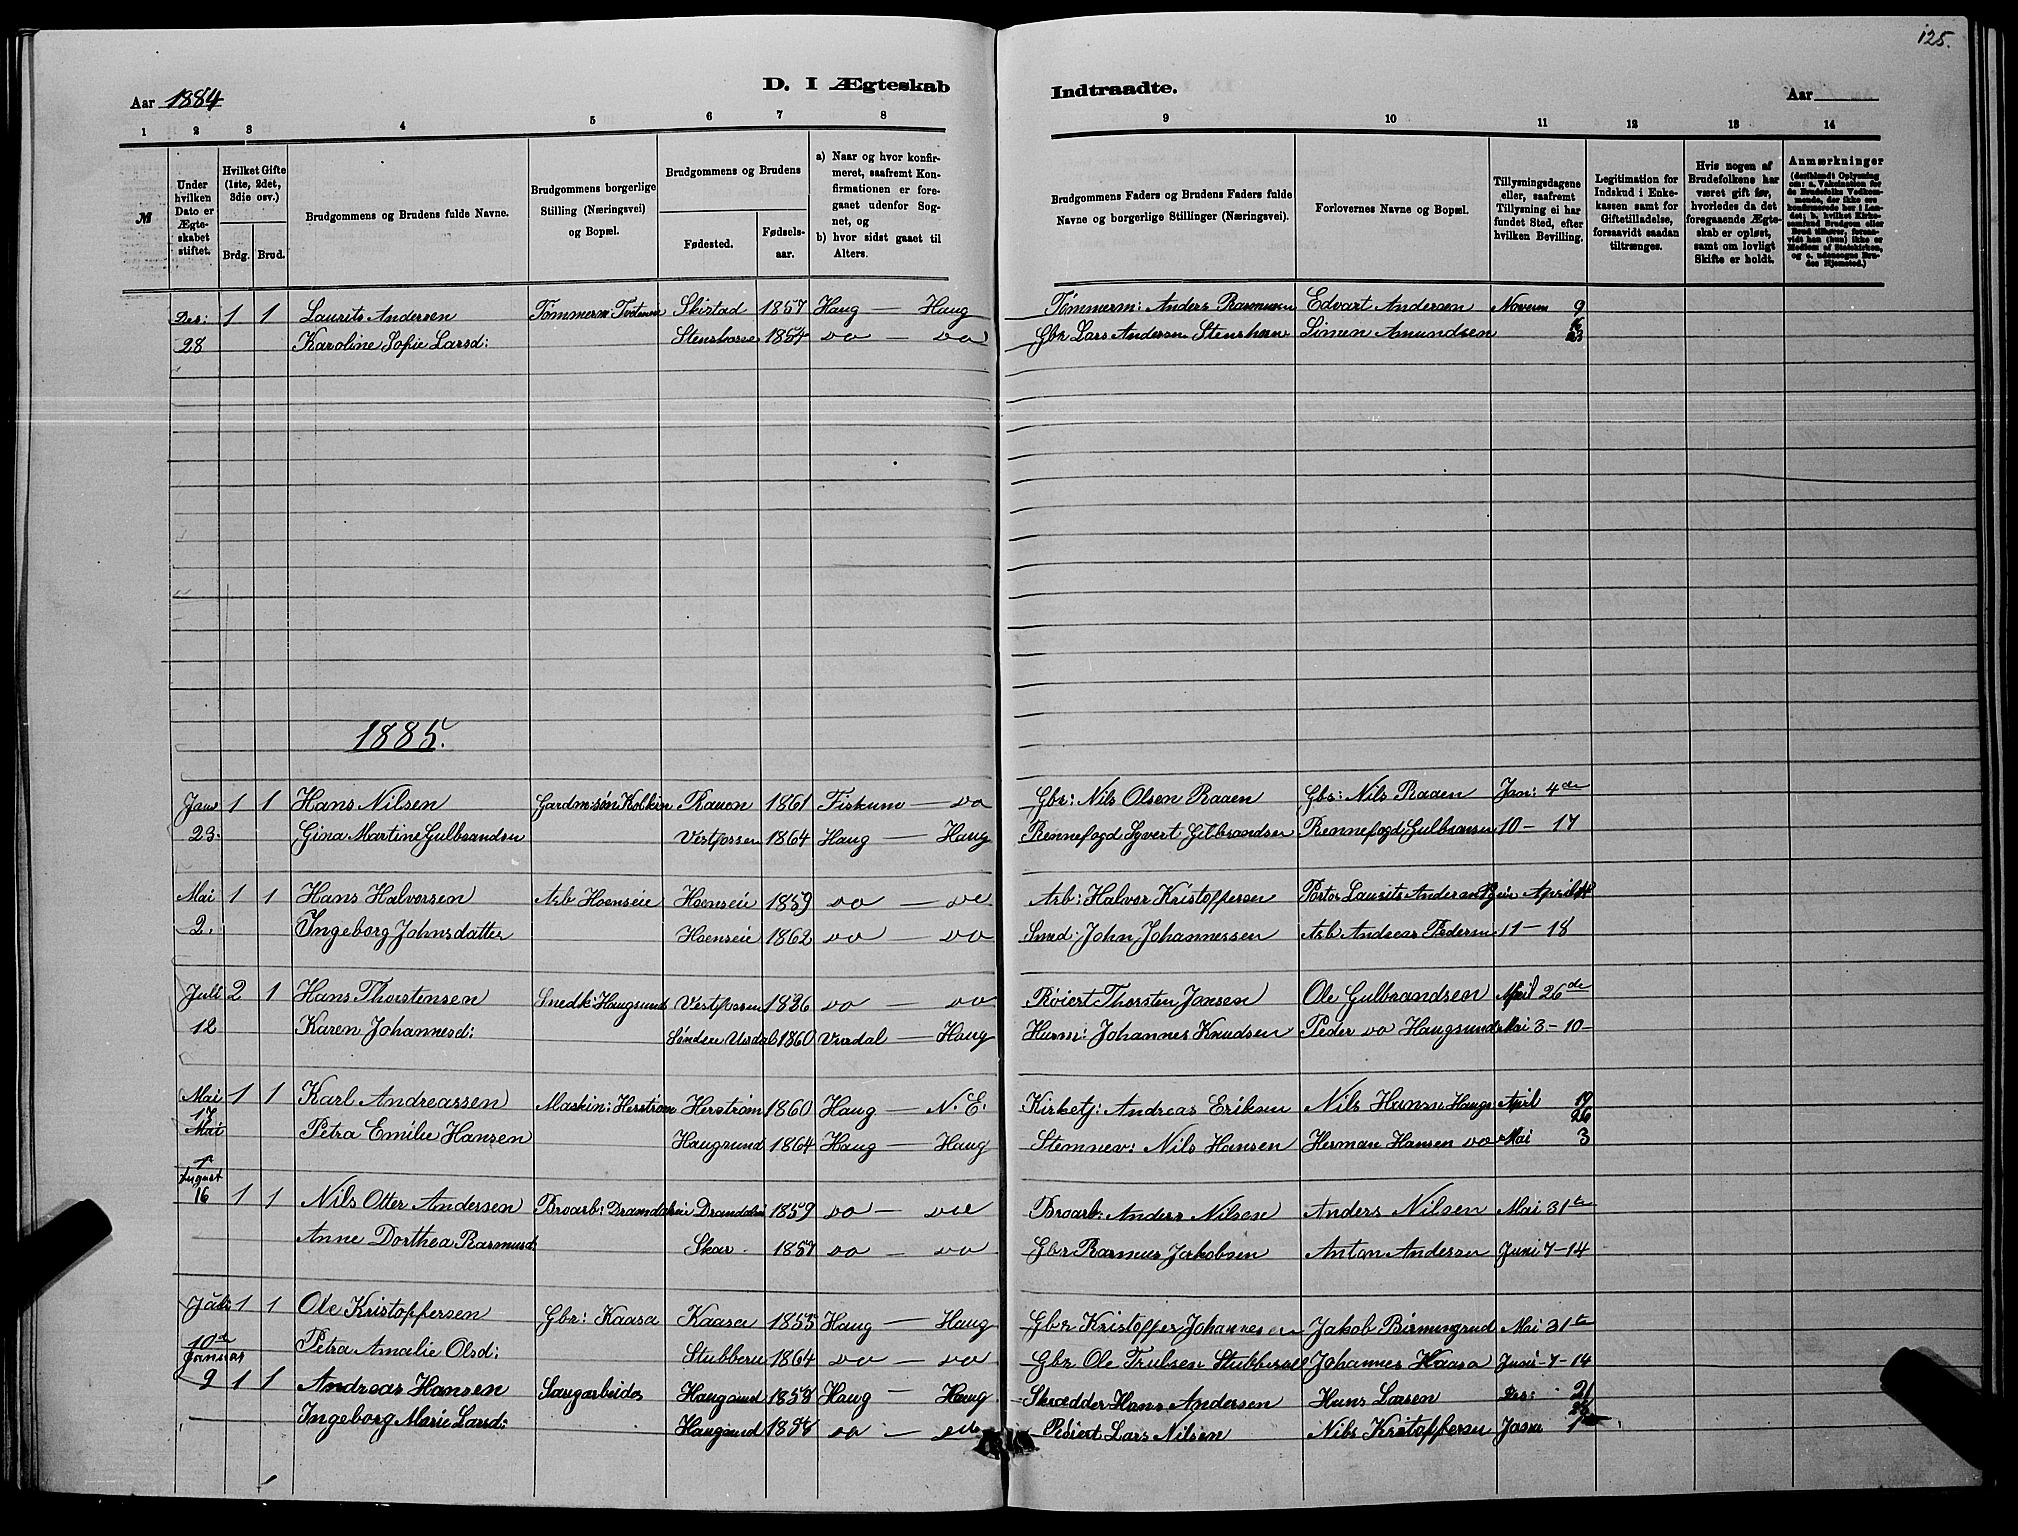 125.
Aar 1884
D. I Ægteskab
Indtraadte.
Aar
1 2 3 4 5 6 7 8 9 10 11 12 13 14
M
Under hvilken Dato er Ægteskabet stiftet.
Hvilket Gifte (1ste, 2det, 3die osv.)
Brdg. Brud.
Brudgommens og Brudens fulde Navne.
Brudgommens borgerlige Stilling (Næringsvei) og Bopæl.
Brudgommens og Brudens
Fødested. Fødselsaar.
a) Naar og hvor konfirmeret, saafremt Konfirmationen er foregaaet udenfor Sognet, og
b) hvor sidst gaaet til Alters.
Brudgommens Faders og Brudens Faders fulde Navne og borgerlige Stillinger (Næringsvei).
Forlovernes Navne og Bopæl.
Tillysningsdagene eller, saafremt Tillysning ei har fundet Sted, efter hvilken Bevilling.
Legitimation for Indskud i Enkekassen samt for Giftetilladelse, forsaavidt saadan tiltrænges.
Hvis nogen af Brudefolkene har været gift før, hvorledes da det foregaaende Ægteskab er opløst, samt om lovligt Skifte er holdt.
Anmærkninger (deriblandt Oplysning om: a. Vaksination for de Brudefolks Vedkommende, der ikke ere konfirmerede her i Landet; b. hvilket Kirkesamfund Brudgom eller Brud tilhører, forsaavidt han (hun) ikke er Medlem af Statskirken, og c. udensogns Brudes Hjemsted.)
Des: 1 1 Laurits Andersen Tømmerm: Skistad 1857 Haug — Haug Tømmerm: Anders Rasmussen Edvart Andersen Novem 9
28 Karoline Sofie Larsd: 1854 do — do Gbr Lars Andersen Simen Amundsen 16 23
1885.
Jan 1 1 Hans Nilsen Gardm:søn Kolkin Raaen 1861 Fiskum — do Gbr: Nils Olsen Raaen Gbr: Nils Raaen Jan: 4de
23. Gina Martine Gulbrandsen Vestfossen 1864 Haug — Haug Rennefogd Syvert Gulbrandsen Rennefogd Gulbransen 10 — 17
Mai 1 1 Hans Halvorsen Arb Hoenseie Hoenseie 1859 do — do Arb: Halvor Kristoffersen Portør Laurits Andersen April
2. Ingeborg Johnsdatter Hoenseie 1862 do — do Smed: John Johannessen Arb Andreas Pedersen 11 — 18
Juli 2 1 Hans Thorstensen Snedk: Haugsund Vestfossen 1836 do — do Røiert Thorsten Jonsen Ole Gulbrandsen April 26de
12 Karen Johannesd: Søndre Uvdal 1860 Uvdal — Haug Husm: Johannes Knudsen Peder do Haugsund Mai 3 — 10 —
Mai 1 1 Karl Andreassen Maskin: Herstrøm Herstrøm 1860 Haug — N. E. Kirketj: Andreas Eriksen Nils Hansen Haugs April 19 26
17 Mai Petra Emilie Hansen Haugsund 1864 Haug — Haug Stemnev: Nils Hansen Herman Hansen do Mai 3
August
16 1 1 Nils Otter Andersen Broarb: Dramdaleie Dramdalen 1859 do — do Broarb: Anders Nilsen Anders Nilsen Mai 31te
Anne Dorthea Rasmusd Skar 1857 do — do Gbr Rasmus Jakobsen Anton Andersen Juni 7 — 14
Juli 1 1 Ole Kristoffersen Gbr: Kaasa Kaasa 1855 Haug — Haug Gbr Kristoffer Johannesen Jakob Birmingrud Mai 31te
10de Petra Amalie Olsd: Stubberu 1864 do — do Gbr Ole Trulsen Stubberud Johannes Kaasa Juni 7 — 14
Januar
9 1 1 Andreas Hansen Saugarbeider Haugsund 1858 Haug — Haug Skrædder Hans Andersen Hans Larsen Des: 21
Ingeborg Marie Larsd: Haugsund do — do Røiert Lars Nilsen Nils Kristoffersen Janu